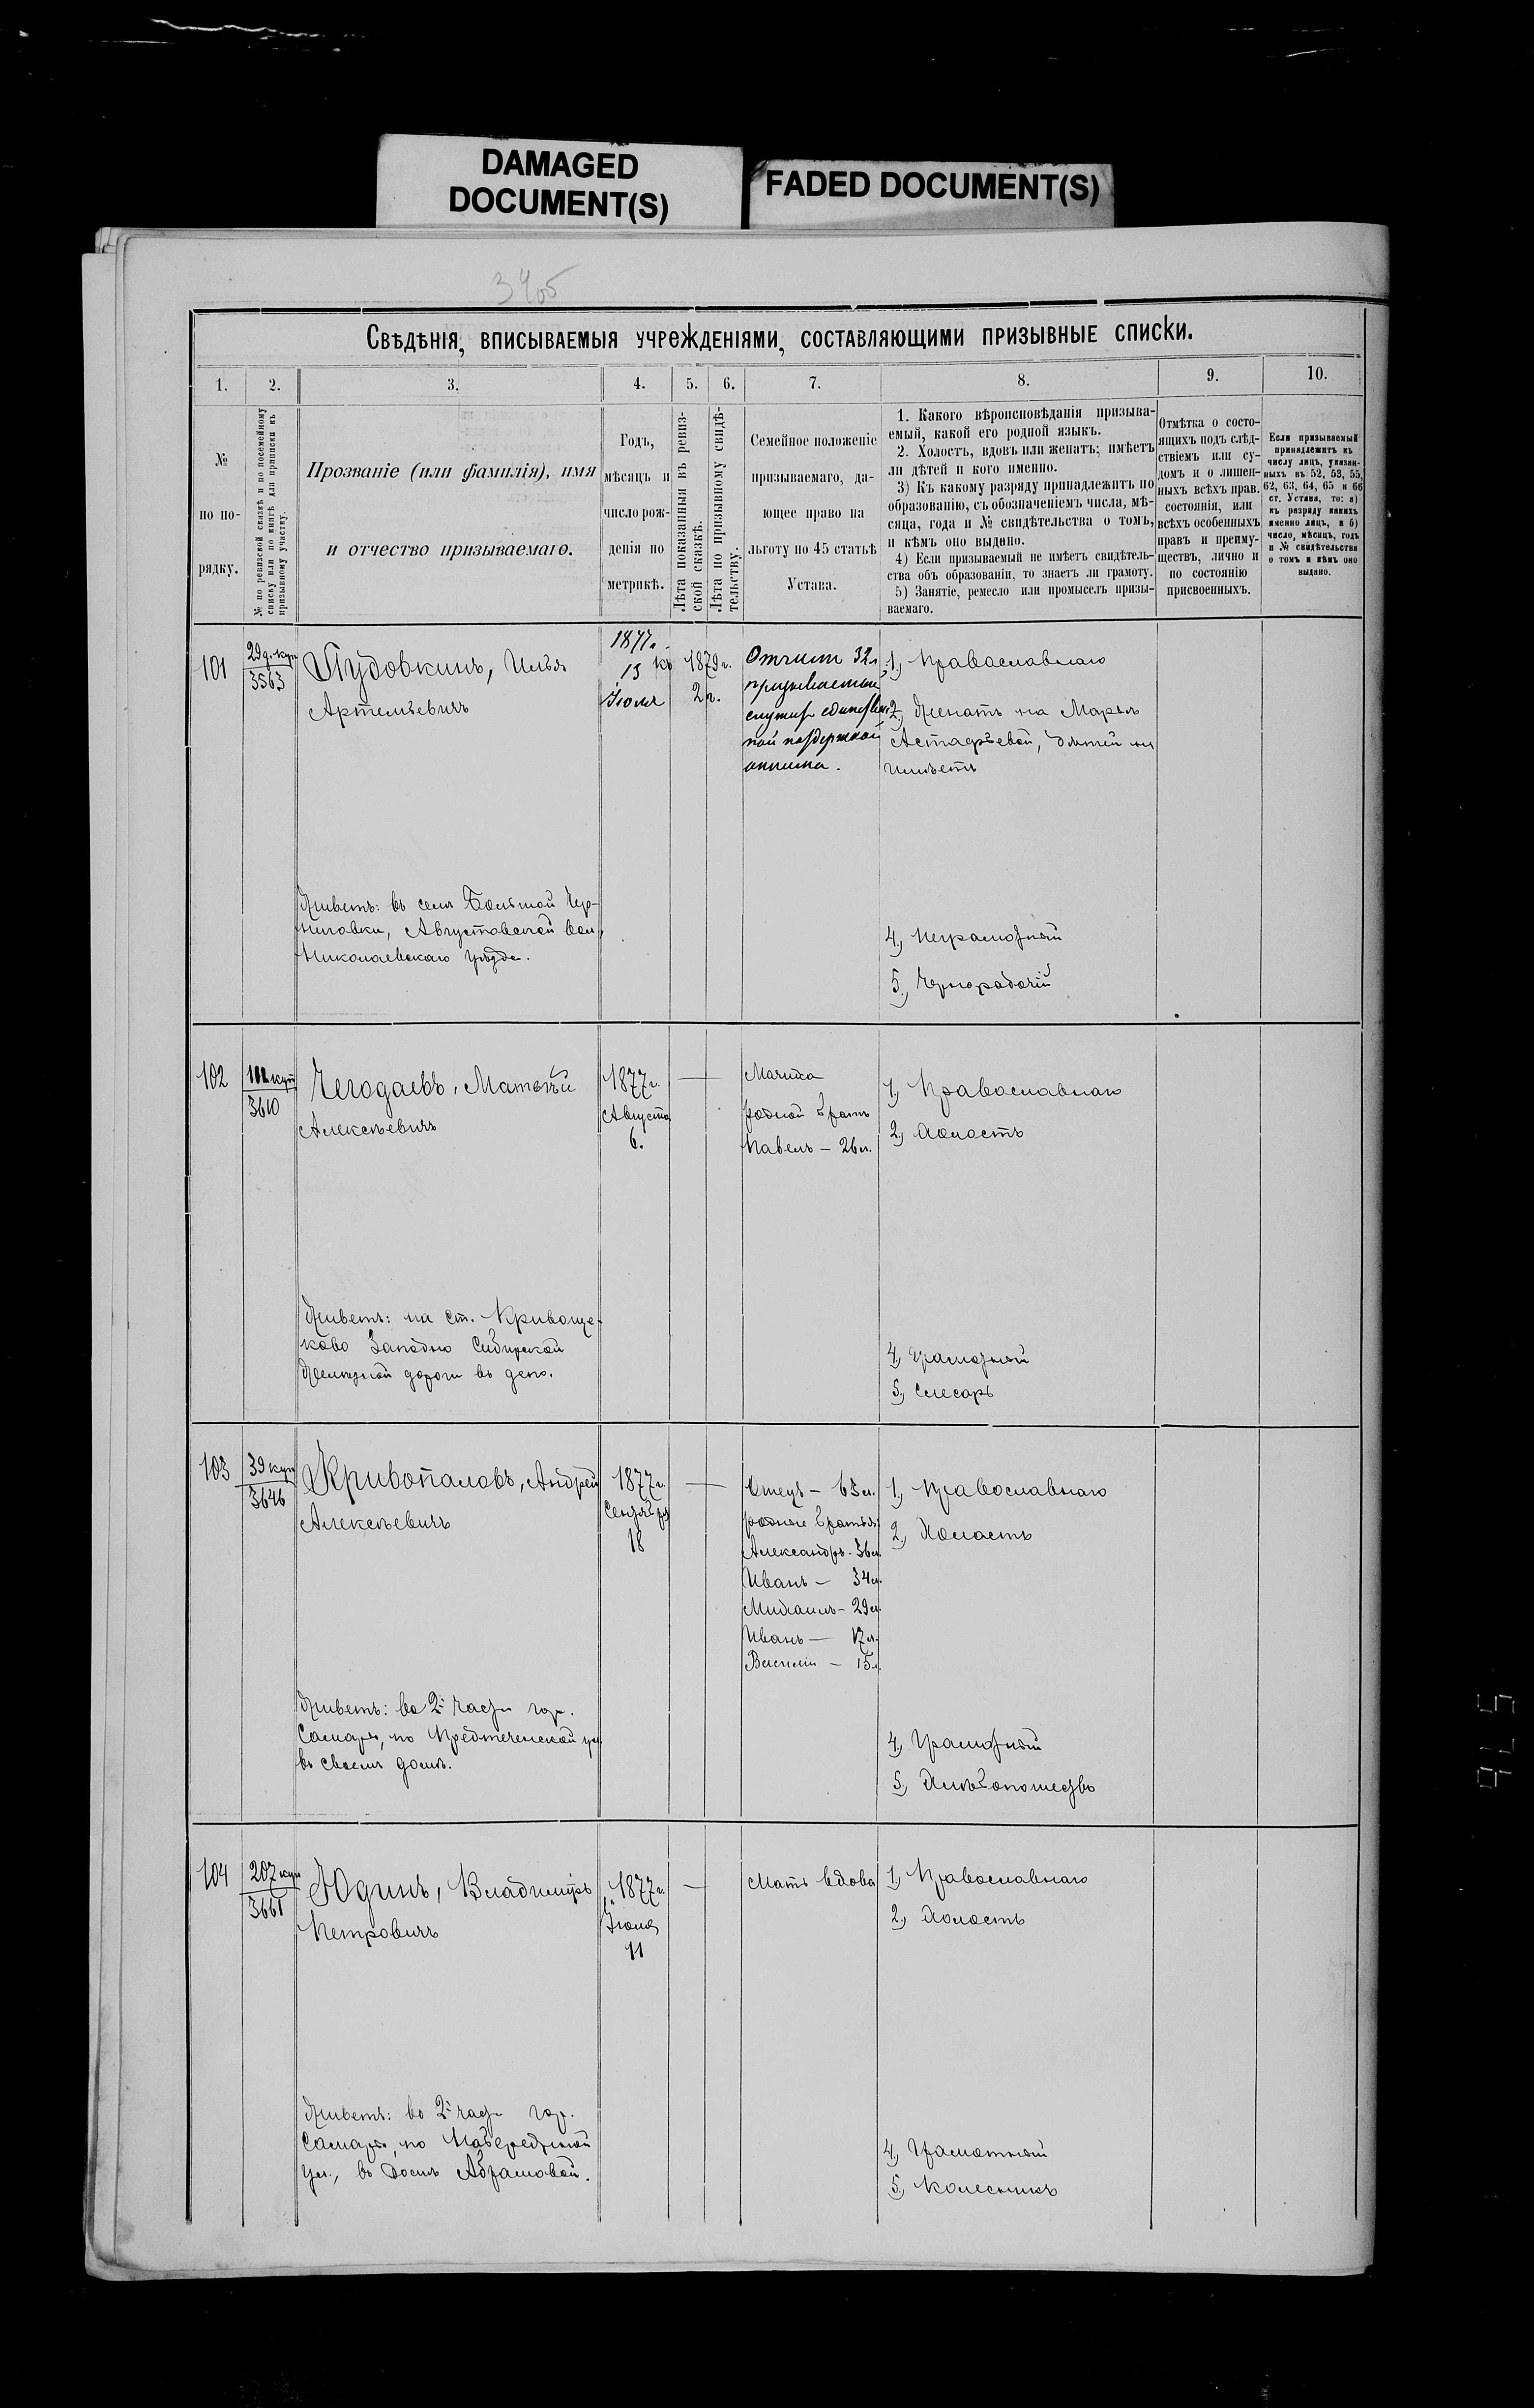 DAMAGED
DOCUMENT(S)
FADED DOCUMENT(S)
Свѣдѣнія, вписываемыя учрежденіями, составляющими призывные списки.
1. 2. 3. 4. 5. 6. 7. 8. 9. 10.
№
по по-
рядку.
№ по ревизской сказкѣ и по посемейному
списку или по книгѣ для приписки къ
призывному участку.
Прозваніе (или фамилія), имя
и отчество призываемаго.
Годъ,
мѣсяцъ и
число рож-
денія по
метрикѣ.
Лѣта показанныя въ ревиз-
ской сказкѣ.
Лѣта по призывному свидѣ-
тельству.
Семейное положеніе
призываемаго, да-
ющее право на
льготу по 45 статьѣ
Устава.
1. Какого вѣроисповѣданія призыва-
емый, какой его родной языкъ.
2. Холостъ, вдовъ или женатъ; имѣетъ
ли дѣтей и кого именно.
3) Къ какому разряду принадлежитъ по
образованію, съ обозначеніемъ числа, мѣ-
сяца, года и № свидѣтельства о томъ,
и кѣмъ оно выдано.
4) Если призываемый не имѣетъ свидѣтель-
ства объ образованіи, то знаетъ ли грамоту.
5) Занятіе, ремесло или промыселъ призы-
ваемаго.
Отмѣтка о состо-
ящихъ подъ слѣд-
ствіемъ или су-
домъ и о лишен-
ныхъ всѣхъ прав.
состоянія, или
всѣхъ особенныхъ
правъ и преиму-
ществъ, лично и
по состоянію
присвоенныхъ.
Если призываемый
принадлежитъ къ
числу лицъ, указан-
ныхъ въ 52, 53, 55,
62, 63, 64, 65 и 66
ст. Устава, то: а)
къ разряду какихъ
именно лицъ, и б)
число, мѣсяцъ, годъ
и № свидѣтельства
о томъ и кѣмъ оно
выдано.
101
3563
Пудовкинъ, Илья
Артемьевичъ
1877 г.
13
Іюля
къ 1879 г.
2 г.
Отчим 32 л.
призываемый
служит единствен
ной поддержкой
отчима.
1, Православнаго
2, Женатъ на Марьѣ
Астафьевой, дѣтей не
имѣетъ
Живетъ: въ селѣ Большой Чер-
ниговки, Августовской вол.
Николаевскаго уѣзда.
4, Неграмотный
5, Чернорабочій
102
3610
Чегодаевъ, Матвѣй
Алексѣевичъ
1877 г.
Августа
6.
Мачиха
родной братъ
Павелъ – 26 л.
1, Православнаго
2, Холостъ
Живетъ: на ст. Кривоще-
ково Западно Сибирской
Желѣзной дороги въ депо.
4, Грамотный
5, Слесарь
103
39 куп
3646
Кривопаловъ, Андрей
Алексѣевичъ
1877 г.
Сентября
18
Отецъ – 63 л.
родные братья:
Александръ - 36 л.
Иванъ – 34 л.
Михаилъ – 29 л.
Иванъ – 17 л.
Василій – 15 л.
1, Православнаго
2, Холостъ
Живетъ: во 2й части гор.
Самары, по Предтеченской ул.
въ своемъ домѣ.
4, Грамотный
5, Хлѣбопашество
104
207 куп
3661
Юдинъ, Владиміръ
Петровичъ
1877 г.
Іюля
11
Мать вдова
1, Православнаго
2, Холостъ
Живетъ: во 2й части гор.
Самары, по Набережной
ул., въ домѣ Абрамовой.
4, Грамотный
5, Колесникъ